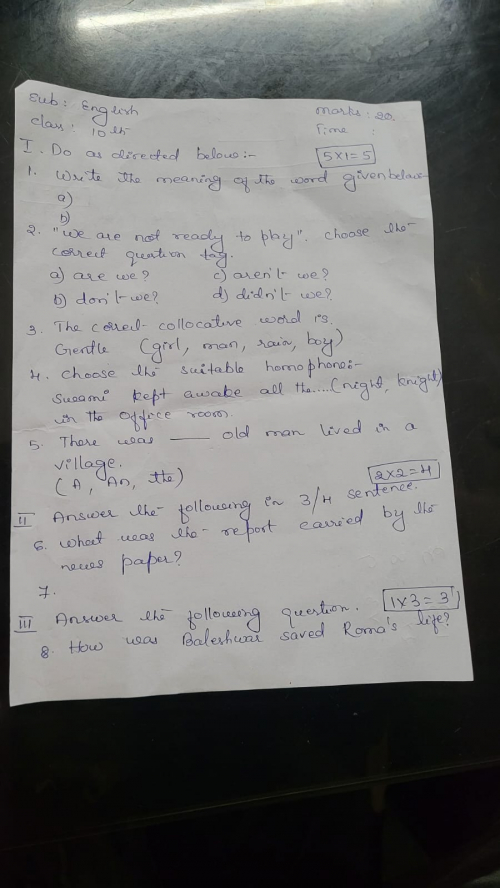 Sub: English
Marks: 20
Class: 10th
Time :
I. Do as directed below:-
5x1=5
1. Write the meaning of the word given below-
a)
b)
2. "We are not ready to play". choose the
correct quation tag.
a) are we? c) aren't we?
b) don't we? d) didn't we?
3. The correct collocative word is.
Gentle (girl, man, rain, boy)
4. choose the suitable homophone:-
Swami kept awake all the....(night, knight)
in the office room.
5. There was ___ old man lived in a
village.
(A, An, the)
2x2=4
II Answer the following in 3/4 sentence.
6. What was the report carried by the
news paper?
7.
III Answer the following question.
1x3=3
8. How was Baleshwar saved Roma's life?